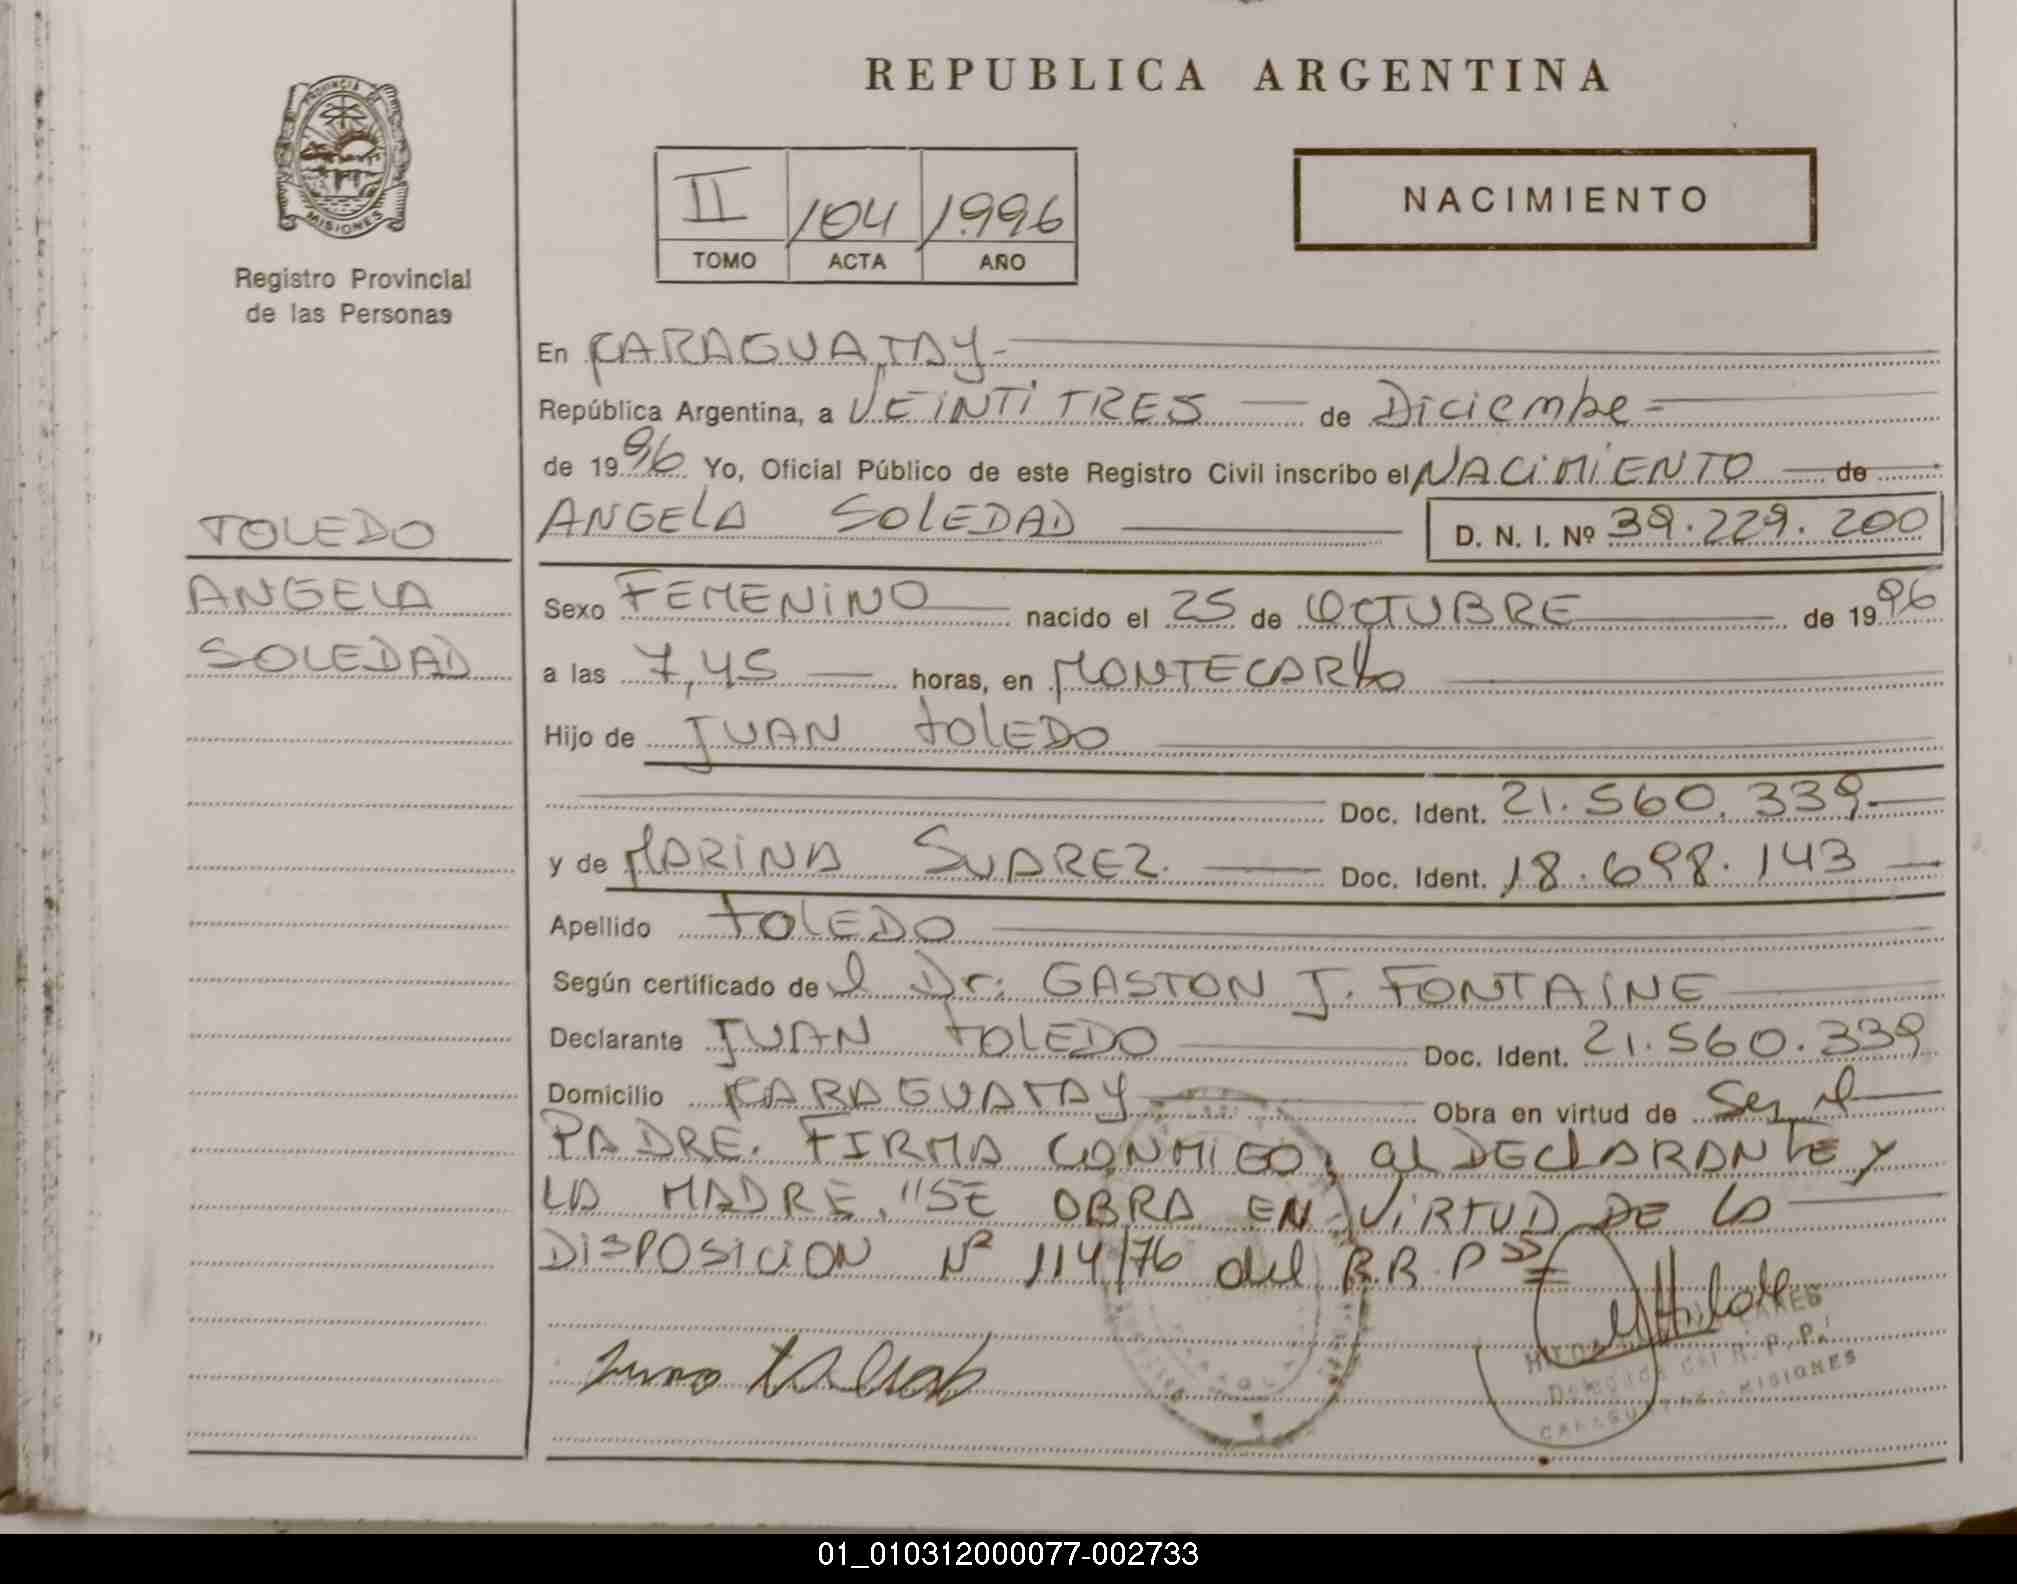 REPUBLICA ARGENTINA
PROVINCIA DE
MISIONES
Registro Provincial
de las Personas
II 104 1.996
TOMO ACTA AÑO
NACIMIENTO
En CARAGUATAY.-
República Argentina, a VEINTITRES de Diciembe
de 1996 Yo, Oficial Público de este Registro Civil inscribo el NACIMIENTO de
ANGELA SOLEDAD D. N. I. Nº 39.229.200
TOLEDO
ANGELA
SOLEDAD
Sexo FEMENINO nacido el 25 de OCTUBRE de 1996
a las 7,45 horas, en MONTECARLO
Hijo de JUAN TOLEDO
Doc. Ident. 21.560.339
y de MARINA SUAREZ. Doc. Ident. 18.698.143
Apellido TOLEDO
Según certificado de el Dr. GASTON J. FONTAINE
Declarante JUAN TOLEDO Doc. Ident. 21.560.339
Domicilio CARAGUATAY Obra en virtud de Ser el
PADRE. FIRMA CONMIGO, al DECLARANTE Y
LA MADRE, "SE OBRA EN VIRTUD DE LA
DISPOSICION Nº 114/76 del R.R.Pss
Delegada del R. P. P.
CARAGUATAY - MISIONES
01_010312000077-002733